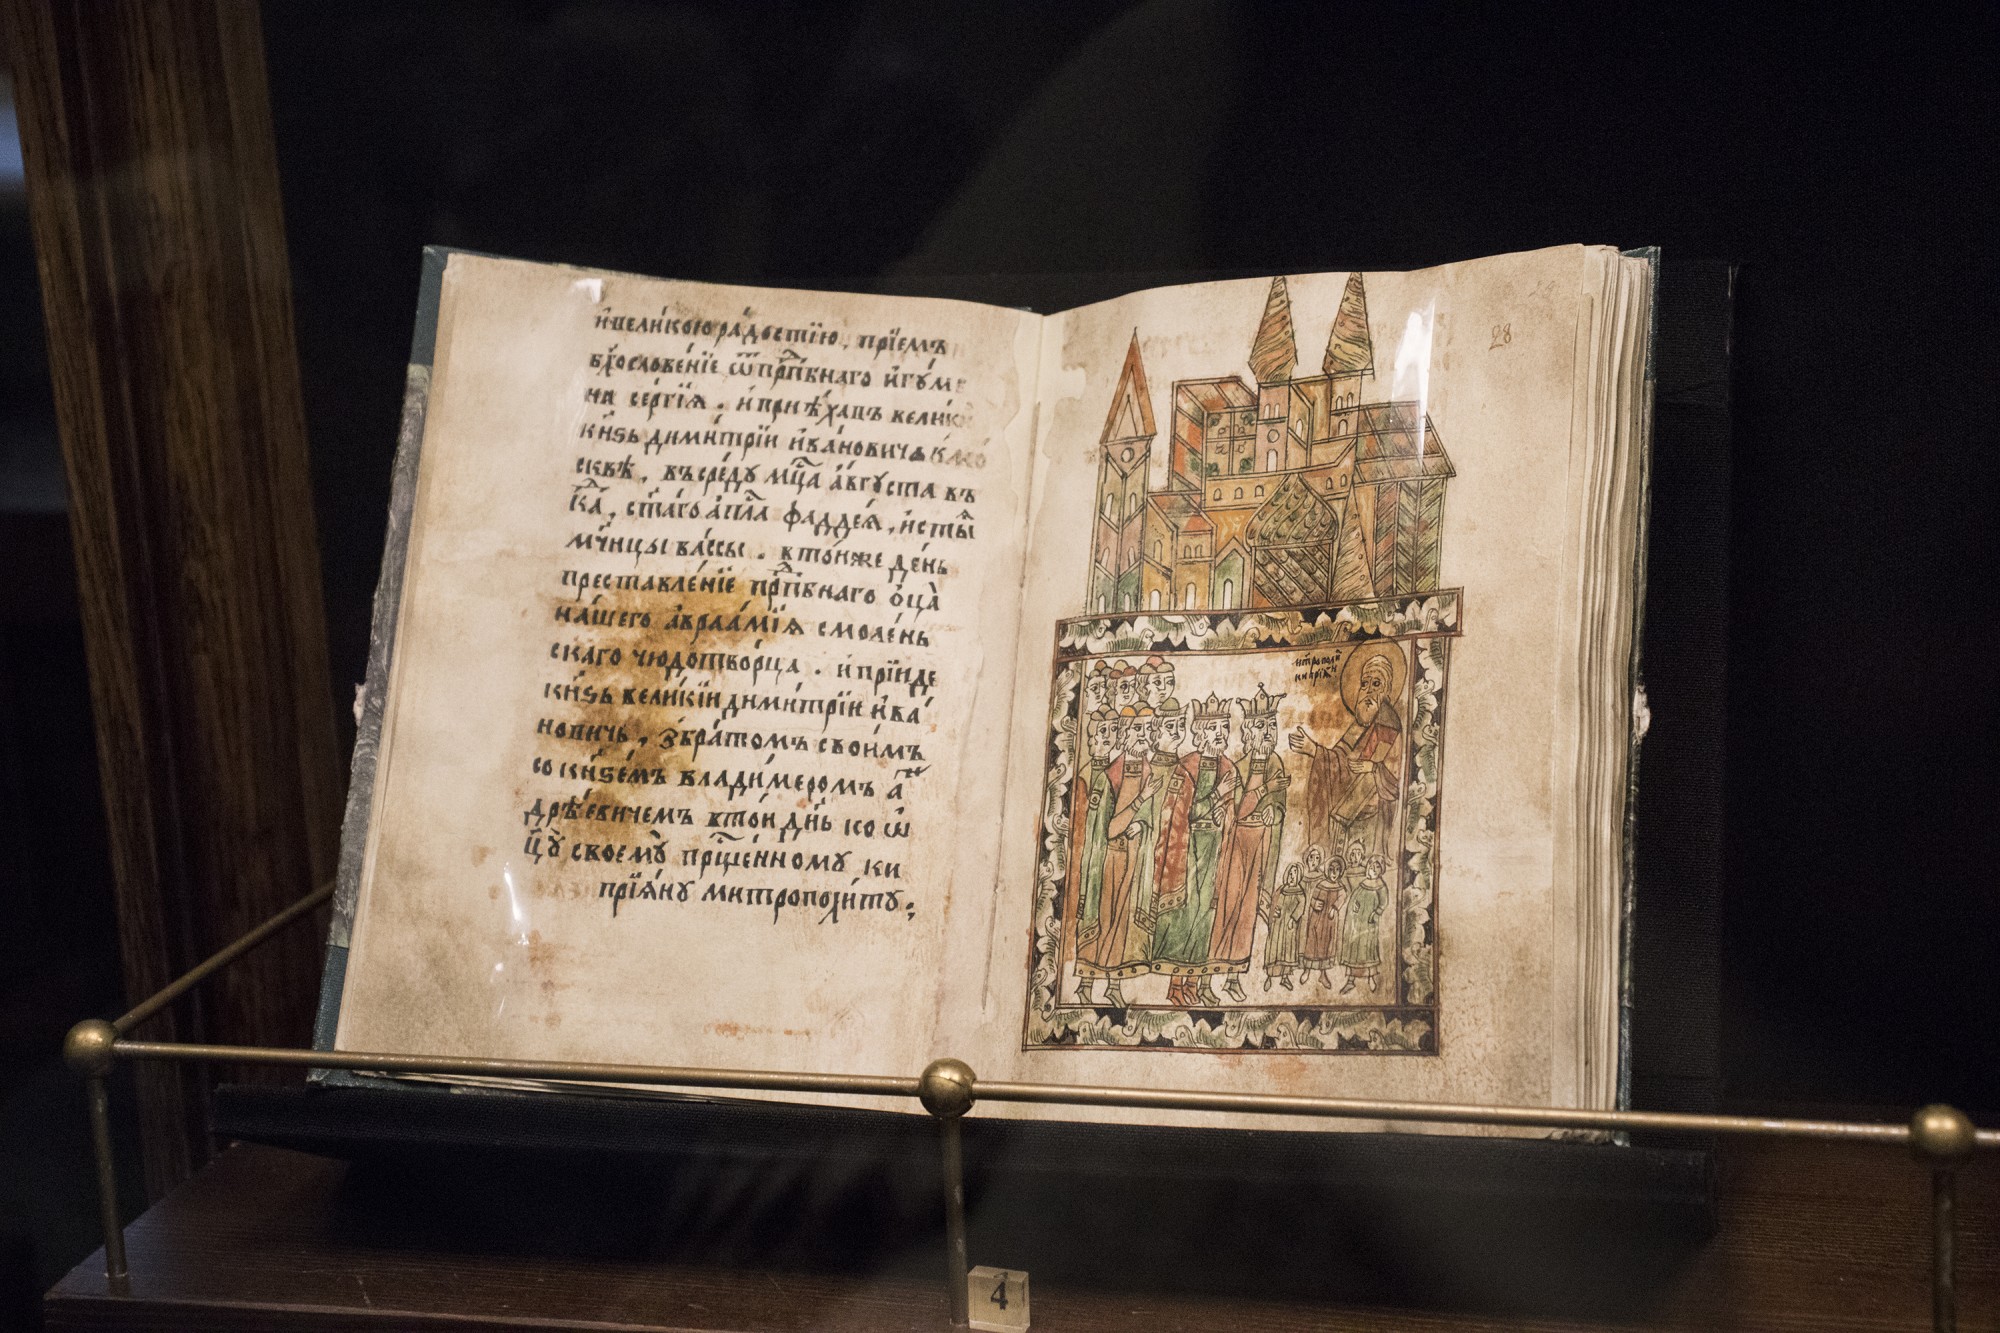 и҆ вели́кою ра́достїю, прїемъ
бл҃ослове́нїе ѿ прпⷣбнаго и҆гу́ме
на се́ргїѧ. и҆ прїѣ́хавъ вели́к
кн҃ѕь дими́трїи и҆ва́новичь к мо
сквѣ̀, въ сре́ду мцⷭ҇а а҆́вгуста въ
к҃а, ст҃а́го а҆пⷭ҇ла фадде́ѧ, и҆ ст҃ы́ѧ
мч҃нцы ва́ссы. в то́иже де́нь
преставле́нїе прпⷣбнаго ѻ҆ц҃а̀
на́шего а҆враа́мїѧ смоле́нь
скаго чюдотво́рца. и҆ прїиде
кн҃ѕь вели́кїи дими́трїи и҆ва́
новичь, з бра́томъ свои́мъ
со кн҃ѕе́мъ влади́меромъ а҆н
дрѣ́евичемъ в то́и дн҃ь ко ѿ
ц҃ꙋ̀ своемꙋ̀ прⷭ҇ще́нномꙋ ки
прїѧ́нꙋ митрополи́тꙋ.
28
митрополи́т
кипрїѧ́н
4